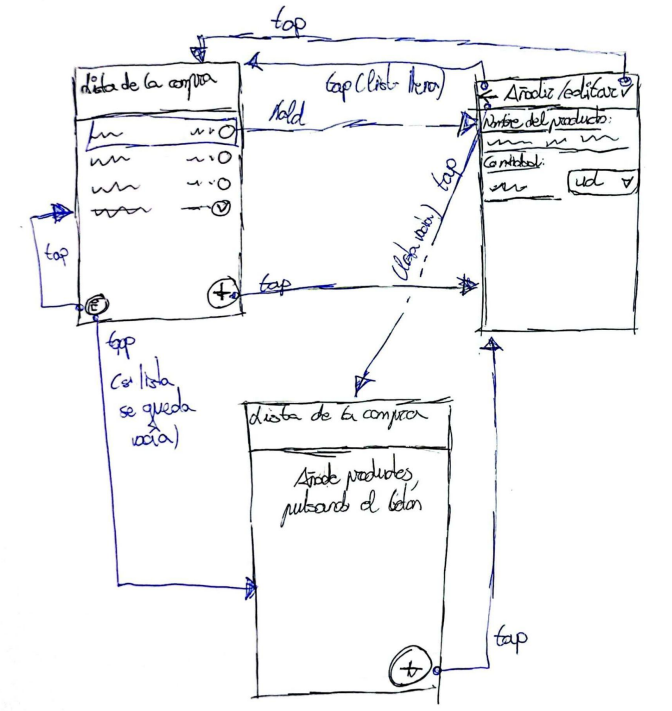 tap
Lista de la compra
tap (list llena)
Añadir/editar
Hold
Nombre del producto:
Cantidad:
ud
tap
(lista vacía) tap
tap
E
+
tap
tap
(si lista
se queda
vacía)
Lista de la compra
Añade productos,
pulsando el botón
+
tap